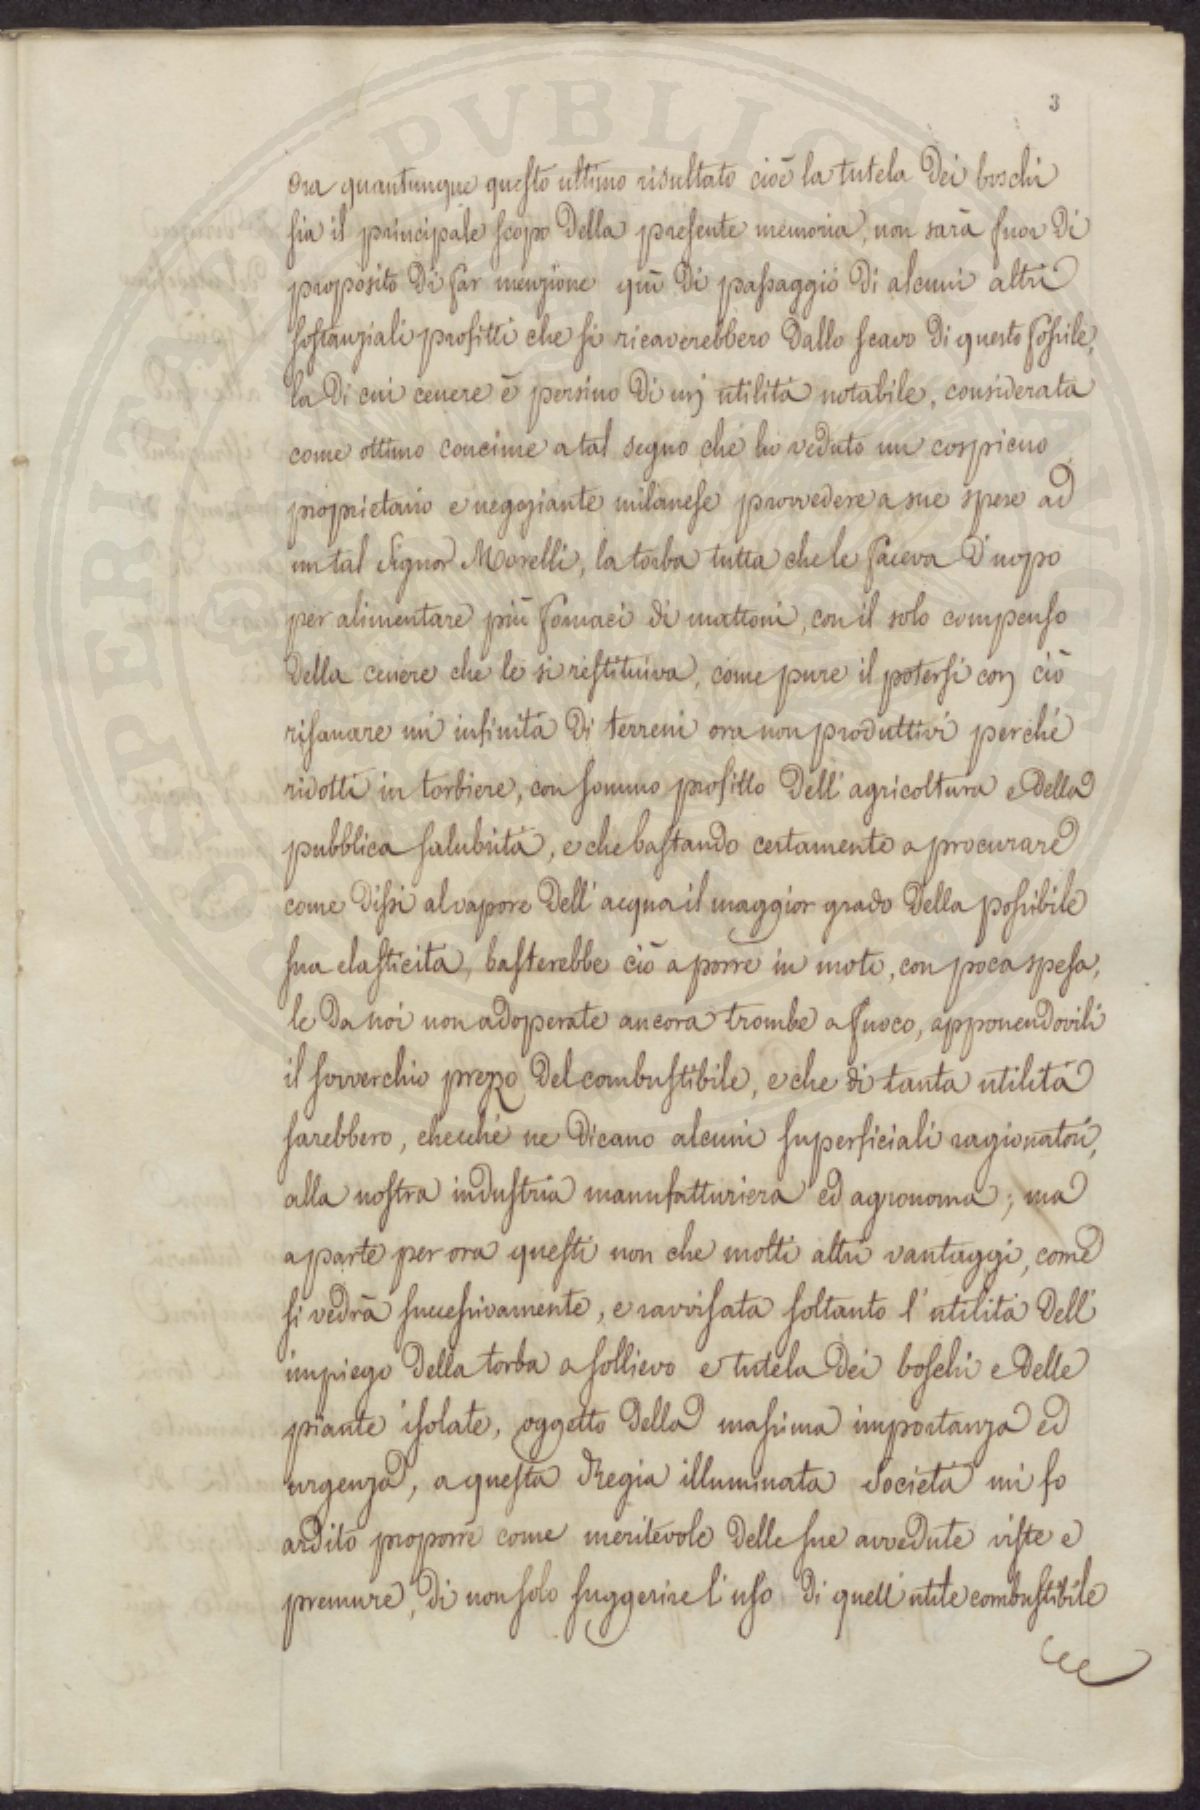 3
Ora quantunque questo ultimo risultato cioè la tutela dei boschi
sia il principale scopo della presente memoria, non sarà fuor di
proposito di far menzione quì di passaggio di alcuni altri
sostanziali profitti che si ricaverebbero dallo scavo di questo fossile,
la di cui cenere è persino di un utilità notabile, considerata
come ottimo concime a tal segno che ho veduto un cospicuo
proprietario e negoziante milanese provvedere a sue spese ad
un tal Signor Morelli, la torba tutta che le faceva d'uopo
per alimentare più fornaci di mattoni, con il solo compenso
della cenere che le si restituiva, come pure il potersi con ciò
risanare un infinità di terreni ora non produttivi perché
ridotti in torbiere, con sommo profitto dell'agricoltura e della
pubblica salubrità, e che bastando certamente a procurare
come dissi al vapore dell'acqua il maggior grado della possibile
sua elasticità, basterebbe ciò a porre in moto, con poca spesa,
le da noi non adoperate ancora trombe a fuoco, apponendovili
il sovverchio prezzo del combustibile, e che di tanta utilità
sarebbero, checché ne dicano alcuni superficiali ragionatori,
alla nostra industria manufatturiera ed agronoma; ma
a parte per ora questi non che molti altri vantaggi, come
si vedrà successivamente, e ravvisata soltanto l'utilità dell'
impiego della torba a sollievo e tutela dei boschi e delle
piante isolate, oggetto della massima importanza ed
urgenza, a questa Regia illuminata Società mi fo
ardito proporre come meritevole delle sue avvedute viste e
premure, di non solo suggerire l'uso di quell'utile combustibile